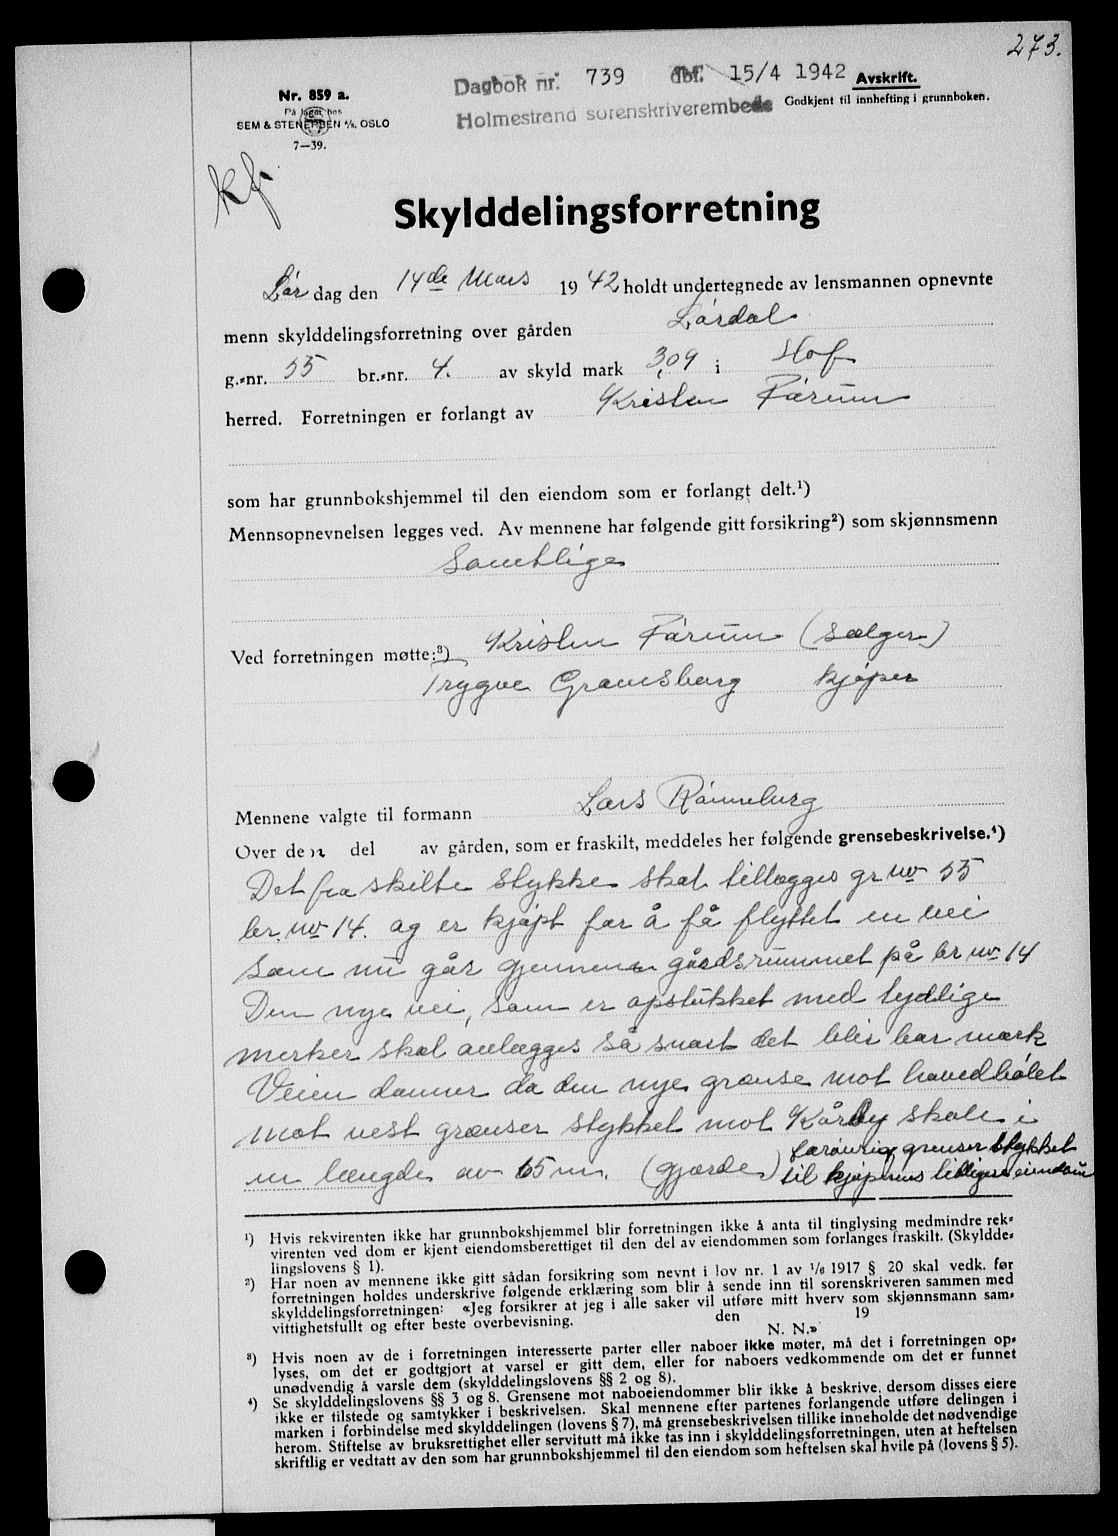 273.
Dagbok nr. 739 dbf. 15/4 1942 Avskrift.
Holmestrand sorenskriverembede Godkjent til innhefting i grunnboken.
Nr. 859 a.
På lager hos
SEM & STENERSEN A/S, OSLO
7—39.
kf.
Skylddelingsforretning
Lør dag den 14de Mars 1942 holdt undertegnede av lensmannen opnevnte
menn skylddelingsforretning over gården Lørdal
g.-nr. 55 br.-nr. 4. av skyld mark 3,09 i Hof
herred. Forretningen er forlangt av Kristen Førum
som har grunnbokshjemmel til den eiendom som er forlangt delt.¹)
Mennsopnevnelsen legges ved. Av mennene har følgende gitt forsikring²) som skjønnsmenn
Samtlige
Ved forretningen møtte:³) Kristen Førum (Sælger)
Trygve Gramsborg kjøper
Mennene valgte til formann Lars Rønneburg
Over den del av gården, som er fraskilt, meddeles her følgende grensebeskrivelse.⁴)
Det fraskilte stykke skal tillægges gr no 55
br. no 14. og er kjøpt for å få flyttet en vei
som nu går gjennem gårdsrummet på br no 14
Den nye vei, som er opstukket med tydlige
merker skal anlægges så snart det blir bar mark
Veien danner da den nye grænse mot hovedbølet
mot vest grænser stykket mot Kårby skole i
en længde av 65 m. (gjærde) forøvrig grenser stykket
til kjøperens tidligere eiendom
¹) Hvis rekvirenten ikke har grunnbokshjemmel blir forretningen ikke å anta til tinglysing medmindre rek-
virenten ved dom er kjent eiendomsberettiget til den del av eiendommen som forlanges fraskilt. (Skyldde-
lingslovens § 1).
²) Har noen av mennene ikke gitt sådan forsikring som nevnt i lov nr. 1 av 1/6 1917 § 20 skal vedk. før
forretningen holdes underskrive følgende erklæring som blir å sende inn til sorenskriveren sammen med
skylddelingsforretningen: «Jeg forsikrer at jeg i alle saker vil utføre mitt hverv som skjønnsmann sam-
vittighetsfullt og efter beste overbevisning. den 19
N. N.»
³) Hvis noen av de i forretningen interesserte parter eller naboer ikke møter, må det i forretningen op-
lyses, om det er godtgjort at varsel er gitt dem, eller for naboers vedkommende om det er funnet
unødvendig å varsle dem (skylddelingslovens §§ 2 og 8).
⁴) Se skylddelingslovens §§ 3 og 8. Grensene mot naboeiendommer blir ikke å beskrive, dersom disses eiere
ikke er tilstede og samtykker i beskrivelsen. Skal mennene efter partenes forlangende utføre delingen i
marken i forbindelse med skylddelingen (lovens § 7), må grensebeskrivelsen tillike inneholde det nødvendige
herom. Stiftelse av bruksrettighet eller servitutt må ikke tas inn i skylddelingsforretningen, uten at heftelsen
skriftlig er vedtatt av den som har grunnbokshjemmel til den eiendom som heftelsen skal hvile på (lovens § 5).